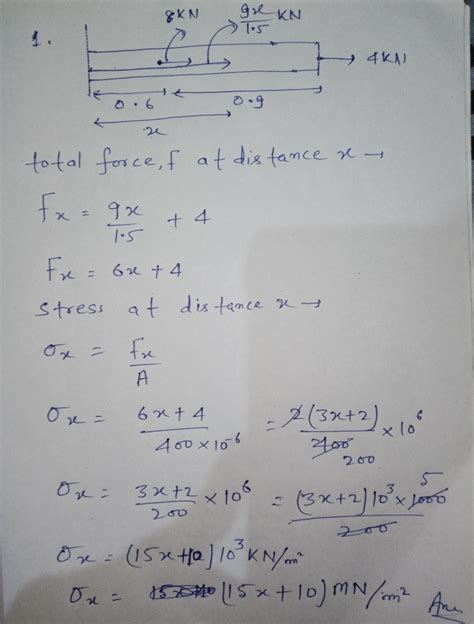 1.
8KN
9x/1.5 KN
4KN
0.6
0.9
x
total force, f at distance x →
Fx = 9x/1.5 + 4
Fx = 6x + 4
stress at distance x →
σx = fx/A
σx = 6x+4 / 400×10^-6 = 2(3x+2) / 400 200 × 10^6
σx = 3x+2 / 200 × 10^6 = (3x+2)10^3 × 1000 5 / 200
σx = (15x+10)10^3 KN/m²
σx = (15x+10) MN/m² Ans